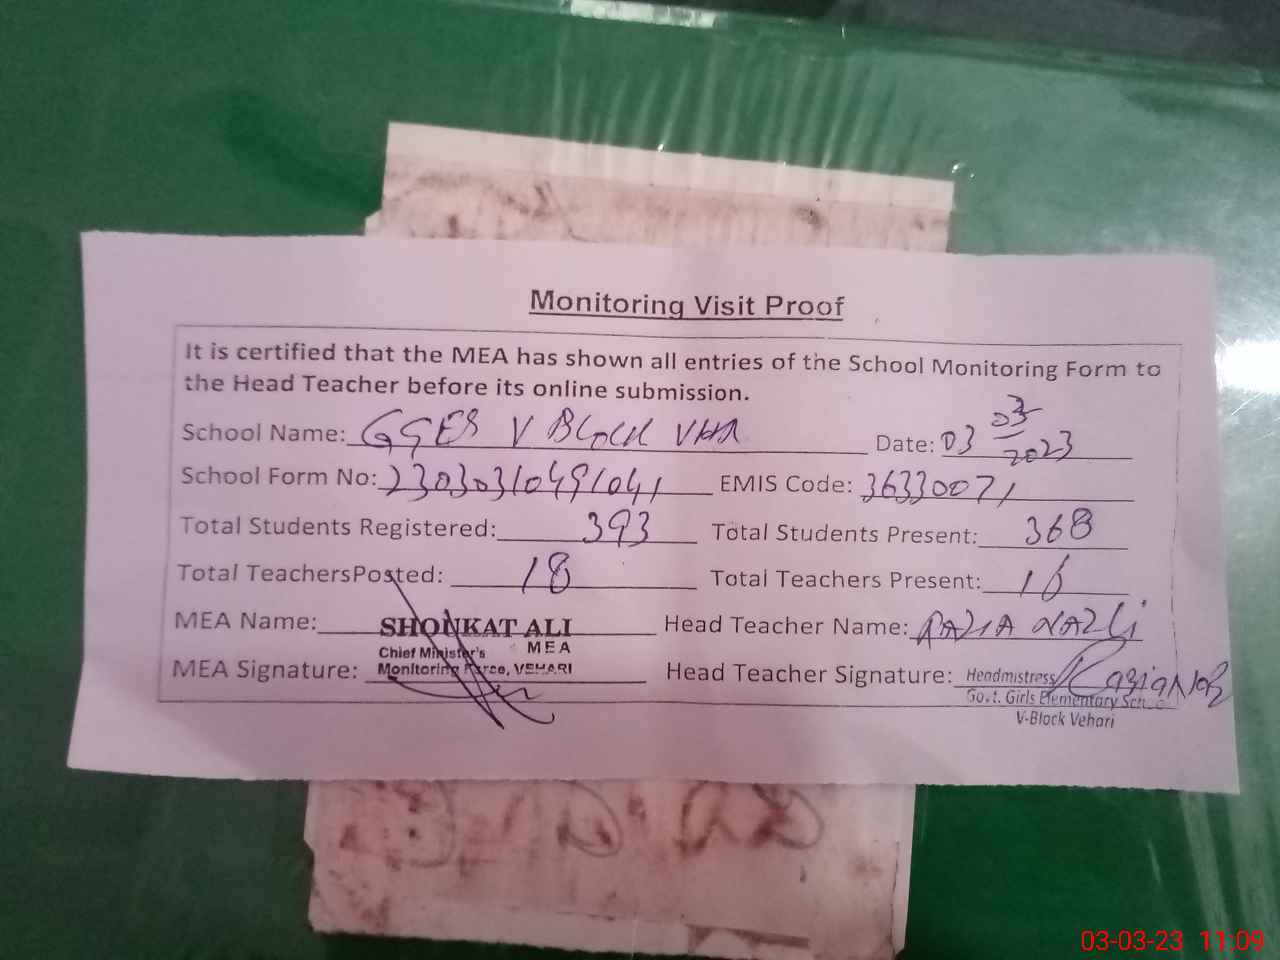 Monitoring Visit Proof
It is certified that the MEA has shown all entries of the School Monitoring Form to
the Head Teacher before its online submission.
School Name: GGES V BLOCK VHR Date: 03 03 2023
School Form No: 23030310491041 EMIS Code: 36330071
Total Students Registered: 393 Total Students Present: 368
Total TeachersPosted: 18 Total Teachers Present: 16
MEA Name: SHOUKAT ALI Head Teacher Name: RAZIA NAZLi
MEA
Chief Minister's
Monitoring Force, VEHARI
MEA Signature: Head Teacher Signature: Razia Naz
Headmistress
Govt. Girls Elementary Sch
V-Block Vehari
03-03-23 11:09